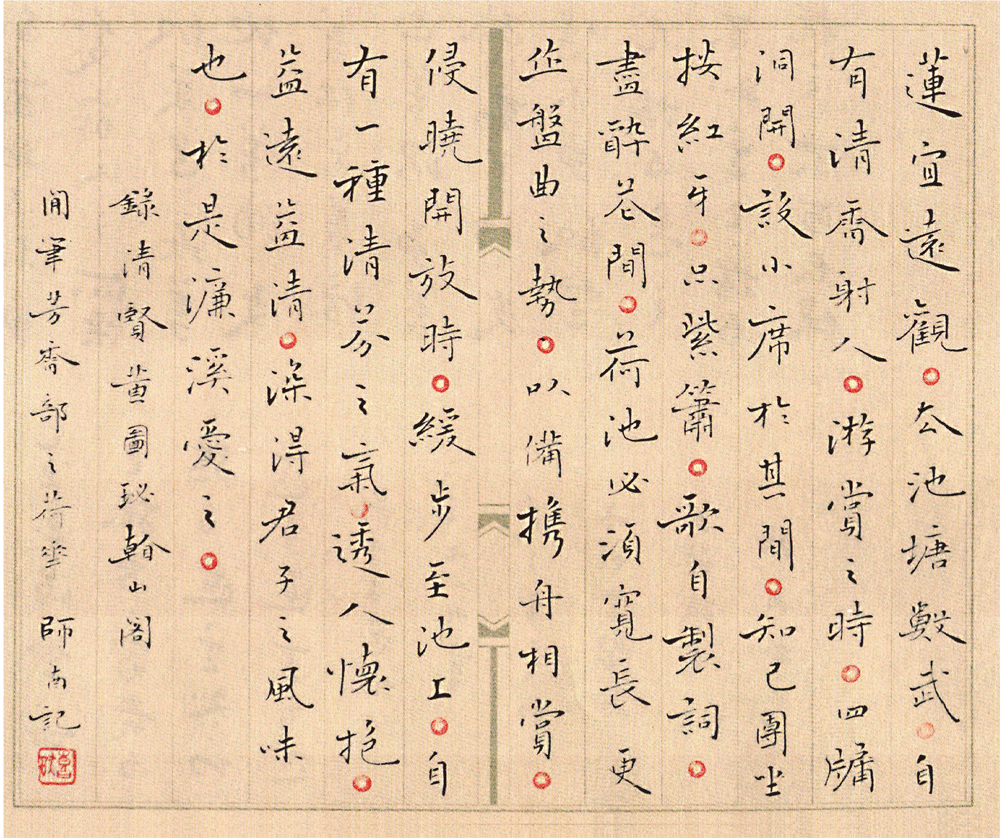 蓮宜遠觀。去池塘數武。自
有清香射人。游賞之時。四牖
洞開。設小席於其間。知己團坐
按紅牙。品紫簫。歌自製詞。
盡醉花間。荷池必須寬長更
作盤曲之勢。以備携舟相賞。
侵曉開放時。緩步至池上。自
有一種清芬之氣。透人懷抱。
益遠益清。深得君子之風味
也。於是濂溪愛之。
錄清賢黃圖珌看山閣
閒筆芳香部之荷花 師南記